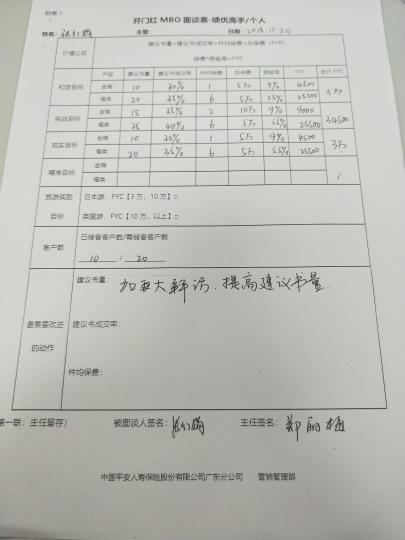 附表1:
开门红 MBO 面谈表-绩优高手/个人
姓名: 主管: 日期: 2018.11.20
价值公式 建议书量*建议书成交率=件均保费=总保费（FYP）
保费*佣金率=FYC
产品 建议书量 建议书成交率 件均保费 总保费 佣金率 FYC 合计 FYC
初定目标 金瑞 10 30% 1 5万 9% 4500 3万
福类 20 35% 6 5万 55% 25500
挑战目标 金瑞 15 35% 2 10万 9% 9000 34500
福类 25 40% 6 5万 55% 25500
现实目标 金瑞 10 30% 1 5万 9% 4500 3万
福类 20 35% 6 5万 55% 25500
精准目标 金瑞
福类
旅游奖励 日本游，FYC【3 万，10 万】□
目标 英国游，FYC【10 万，以上】□
客户数 已储备客户数/需储备客户数
10 / 20
最需要改进的动作 建议书量: 加大拜访，提高建议书量
建议书成交率:
件均保费:
第一联：主任留存） 被面谈人签名: 主任签名:
中国平安人寿保险股份有限公司广东分公司 营销管理部